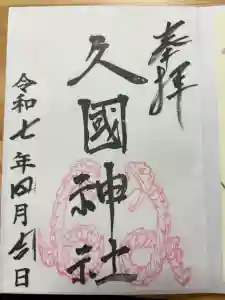 奉拝
久國神社
令和七年四月吉日